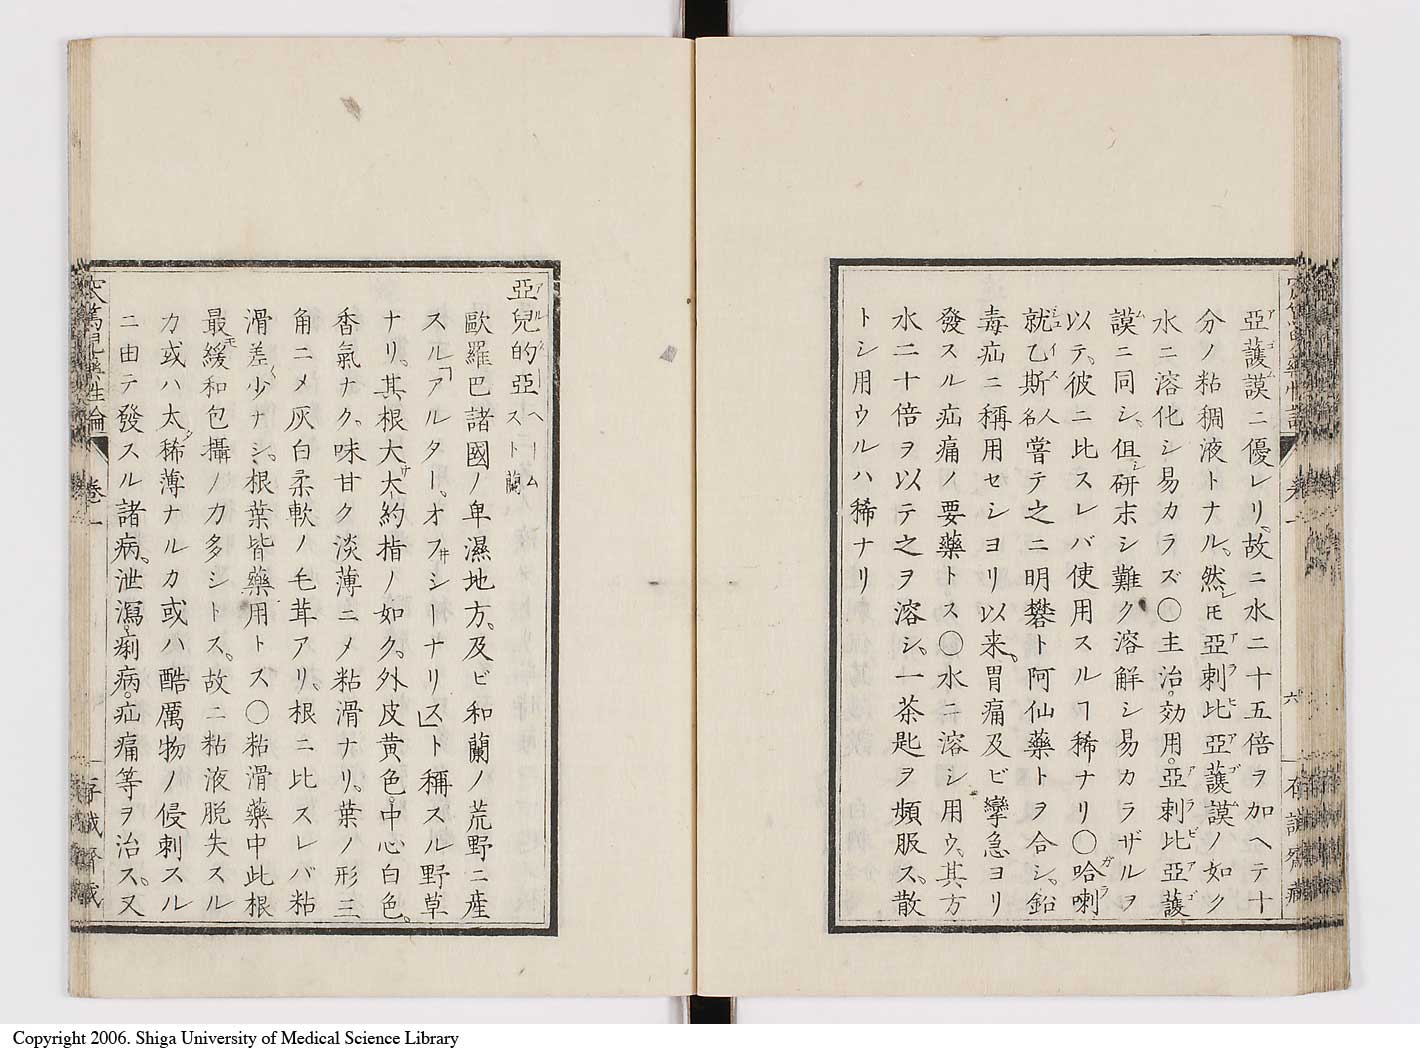 亞護謨ニ優レリ。故ニ水二十五倍ヲ加ヘテ十
分ノ粘稠液トナル。然レ𪜈亞刺比亞護謨ノ如ク
水ニ溶化シ易カラズ〇主治。効用。亞刺比亞護
謨ニ同シ。但シ研末シ難ク溶解シ易カラザルヲ
以テ。彼ニ比スレバ使用スルヿ稀ナリ〇哈喇
就乙斯人名嘗テ之ニ明礬ト阿仙藥トヲ合シ。鉛
毒疝ニ稱用セシヨリ以来。胃痛及ビ攣急ヨリ
發スル疝痛ノ要藥トス〇水ニ溶シ用ウ。其方
水二十倍ヲ以テ之ヲ溶シ。一茶匙ヲ頻服ス。散
トシ用ウルハ稀ナリ
卷一
六
亞兒的亞 ヘームスト蘭
歐羅巴諸國ノ卑濕地方。及ビ和蘭ノ荒野ニ産
スル「アルター。オフ井シーナリス」ト稱スル野草
ナリ。其根大サ大約指ノ如ク。外皮黄色。中心白色。
香氣ナク。味甘ク淡薄ニ〆粘滑ナリ。葉ノ形三
角ニ〆灰白柔軟ノ毛茸アリ。根ニ比スレバ粘
滑差少ナシ。根葉皆藥用トス〇粘滑藥中此根
最モ緩和包攝ノ力多シトス。故ニ粘液脱失スル
カ或ハ太タ稀薄ナルカ或ハ酷厲物ノ侵刺スル
ニ由テ發スル諸病。泄瀉。痢病。疝痛等ヲ治ス。又
卷一